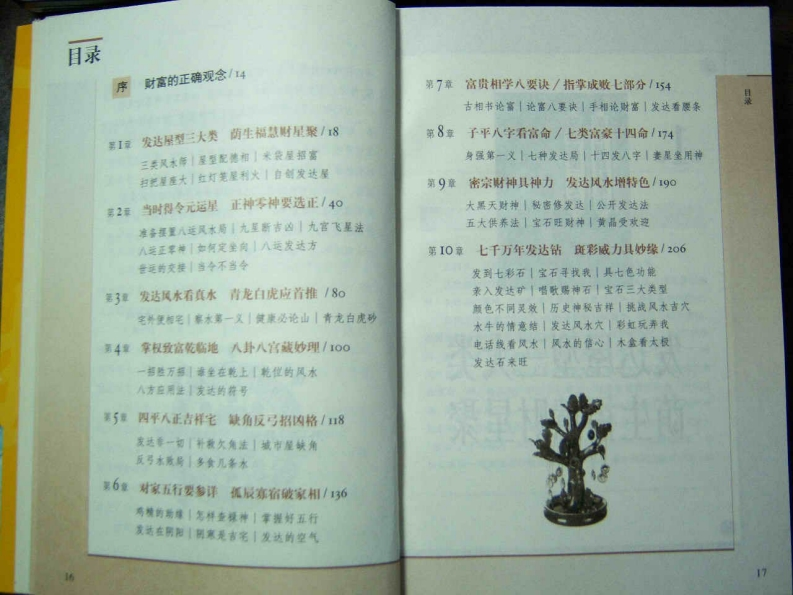 目录
序 财富的正确观念/14
第1章 发达屋型三大类 荫生福慧财星聚/18
三类风水师│屋型配德相│米袋屋招富
扫把星座大│红灯笼屋利火│自创发达屋
第2章 当时得令元运星 正神零神要选正/40
准备摆置八运风水局│九星断吉凶│九宫飞星法
八运正零神│如何定坐向│八运发达方
世运的交接│当令不当令
第3章 发达风水看真水 青龙白虎应首推/80
宅外便相宅│察水第一义│健康必论山│青龙白虎砂
第4章 掌权致富乾临地 八卦八宫藏妙理/100
一招胜万招│谁坐在乾上│乾位的风水
八方应用法│发达的符号
第5章 四平八正吉祥宅 缺角反弓招凶格/118
发达零一切│补救欠角法│城市屋缺角
反弓水败局│多食几条水
第6章 对家五行要参详 孤辰寡宿破家相/136
鸡精的助缘│怎样查禄神│掌握好五行
发达在阴阳│阴寒是吉宅│发达的空气
16
第7章 富贵相学八要诀/指掌成败七部分/154
古相书论富│论富八要诀│手相论财富│发达看腰条
第8章 子平八字看富命/七类富豪十四命/174
身强第一义│七种发达局│十四发八字│妻星坐用神
第9章 密宗财神具神力 发达风水增特色/190
大黑天财神│秘密修发达│公开发达法
五大供养法│宝石旺财神│黄晶受欢迎
第10章 七千万年发达钻 斑彩威力具妙缘/206
发到七彩石│宝石寻找我│具七色功能
亲入发达矿│唱歌赐神石│宝石三大类型
颜色不同灵效│历史神秘吉祥│挑战风水吉穴
水牛的情意结│发达风水穴│彩虹玩弄我
电话线看风水│风水的信心│木盆看太极
发达石来旺
目录
17